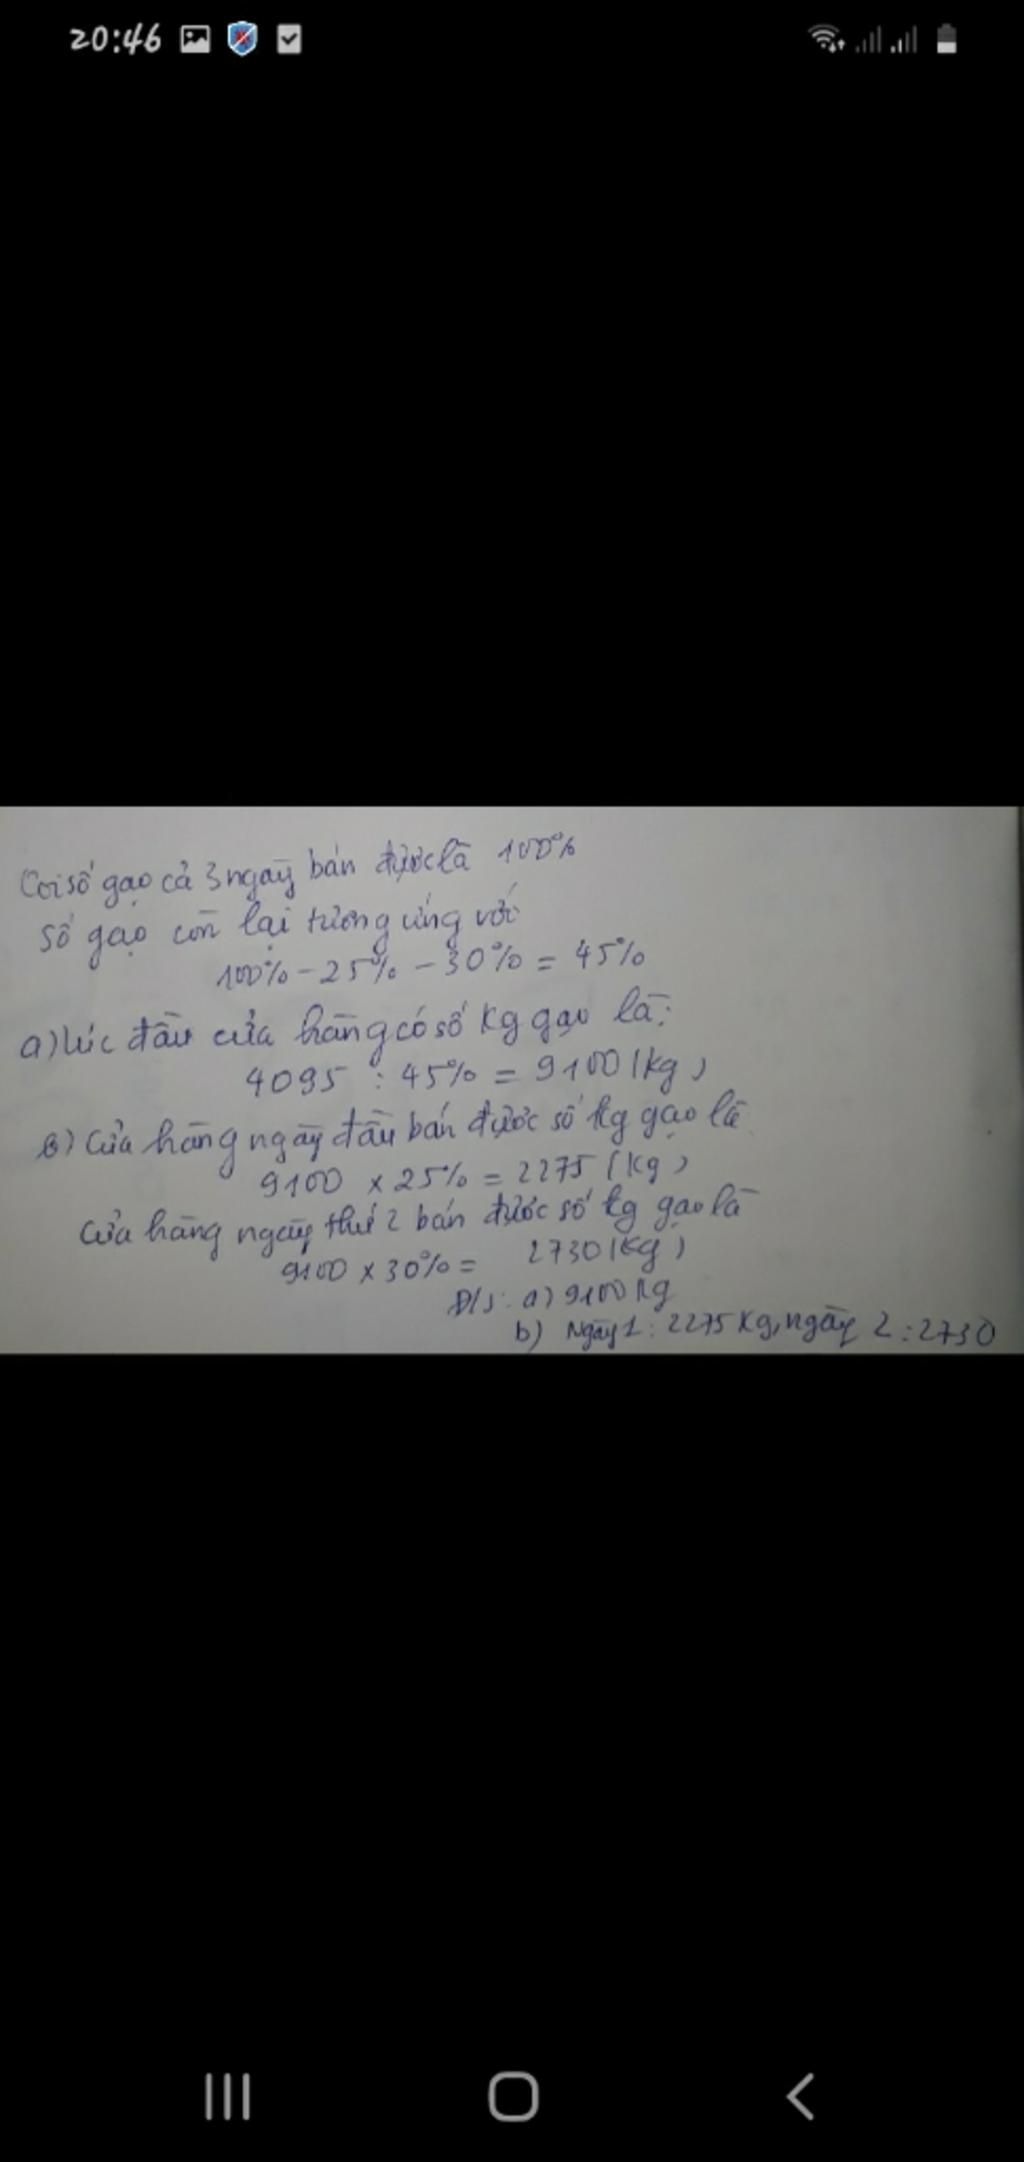 20:46
Coi số gạo cả 3 ngày bán được là 100%
Số gạo còn lại tương ứng với
100% - 25% - 30% = 45%
a) Lúc đầu cửa hàng có số kg gạo là:
4095 : 45% = 9100 (kg)
b) Cửa hàng ngày đầu bán được số kg gạo là
9100 x 25% = 2275 (kg)
Cửa hàng ngày thứ 2 bán được số kg gạo là
9100 x 30% = 2730 (kg)
Đ/s: a) 9100 kg
b) Ngày 1: 2275 kg, ngày 2: 2730